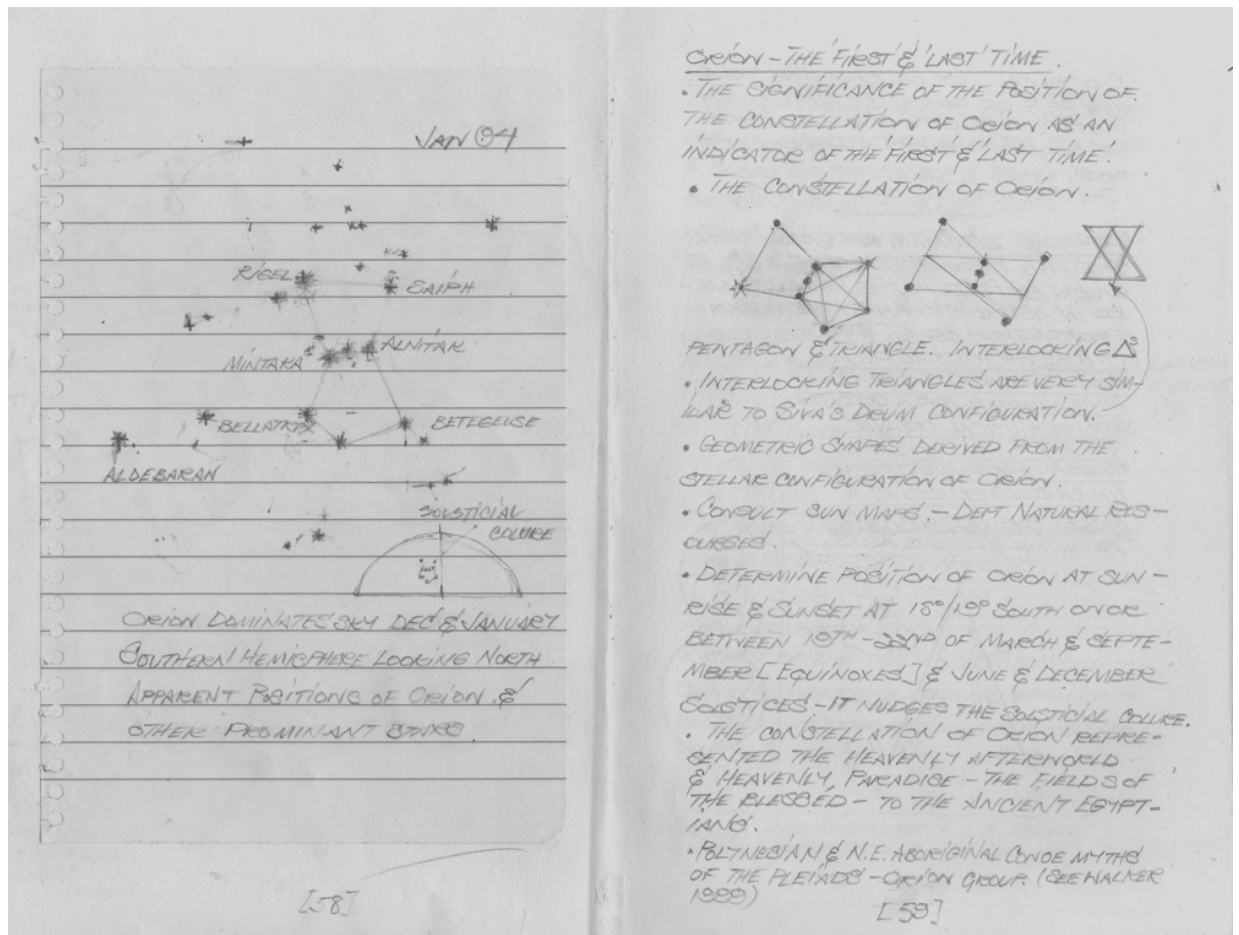 JAN 84
RIGEL
SAIPH
ALNITAK
MINTAKA
BELLATRIX
BETEGEUSE
ALDEBARAN
SOLSTICIAL
COLURE
ORION DOMINATES SKY DEC & JANUARY
SOUTHERN HEMISPHERE LOOKING NORTH
APPARENT POSITIONS OF ORION &
OTHER PROMINANT STARS.
[58]
ORION – THE 'FIRST & LAST' TIME.
• THE SIGNIFICANCE OF THE POSITION OF
THE CONSTELLATION OF ORION AS AN
INDICATOR OF THE 'FIRST & LAST TIME'.
• THE CONSTELLATION OF ORION.
PENTAGON & TRIANGLE. INTERLOCKING Δs
• INTERLOCKING TRIANGLES ARE VERY SIM-
ILAR TO SIVA'S DRUM CONFIGURATION.
• GEOMETRIC SHAPES DERIVED FROM THE
STELLAR CONFIGURATION OF ORION.
• CONSULT SUN MAPS. – DEPT NATURAL RES-
OURSES.
• DETERMINE POSITION OF ORION AT SUN-
RISE & SUNSET AT 18°/19° SOUTH ON OR
BETWEEN 19TH – 22ND OF MARCH & SEPTE-
MBER [EQUINOXES] & JUNE & DECEMBER
SOLSTICES – IT NUDGES THE SOLSTICIAL COLURE.
• THE CONSTELLATION OF ORION REPRE-
SENTED THE HEAVENLY AFTERWORLD
& HEAVENLY PARADISE – THE FIELDS OF
THE BLESSED – TO THE ANCIENT EGYPT-
IANS.
• POLYNESIAN & N.E. ABORIGINAL CANOE MYTHS
OF THE PLEIADS – ORION GROUP. (SEE WALKER
1999)
[59]